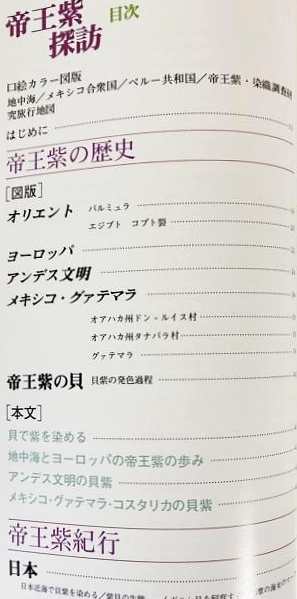 帝王紫
探訪 目次
口絵カラー図版
地中海／メキシコ合衆国／ペルー共和国／帝王紫・染織調査研
究旅行地図
はじめに
帝王紫の歴史
[図版]
オリエント パルミュラ
エジプト コプト製
ヨーロッパ
アンデス文明
メキシコ・グァテマラ
オアハカ州ドン・ルイス村
オアハカ州タナパラ村
グァテマラ
帝王紫の貝 貝紫の発色過程
[本文]
貝で紫を染める
地中海とヨーロッパの帝王紫の歩み
アンデス文明の貝紫
メキシコ・グァテマラ・コスタリカの貝紫
帝王紫紀行
日本
日本近海で貝紫を染める／紫貝の生態